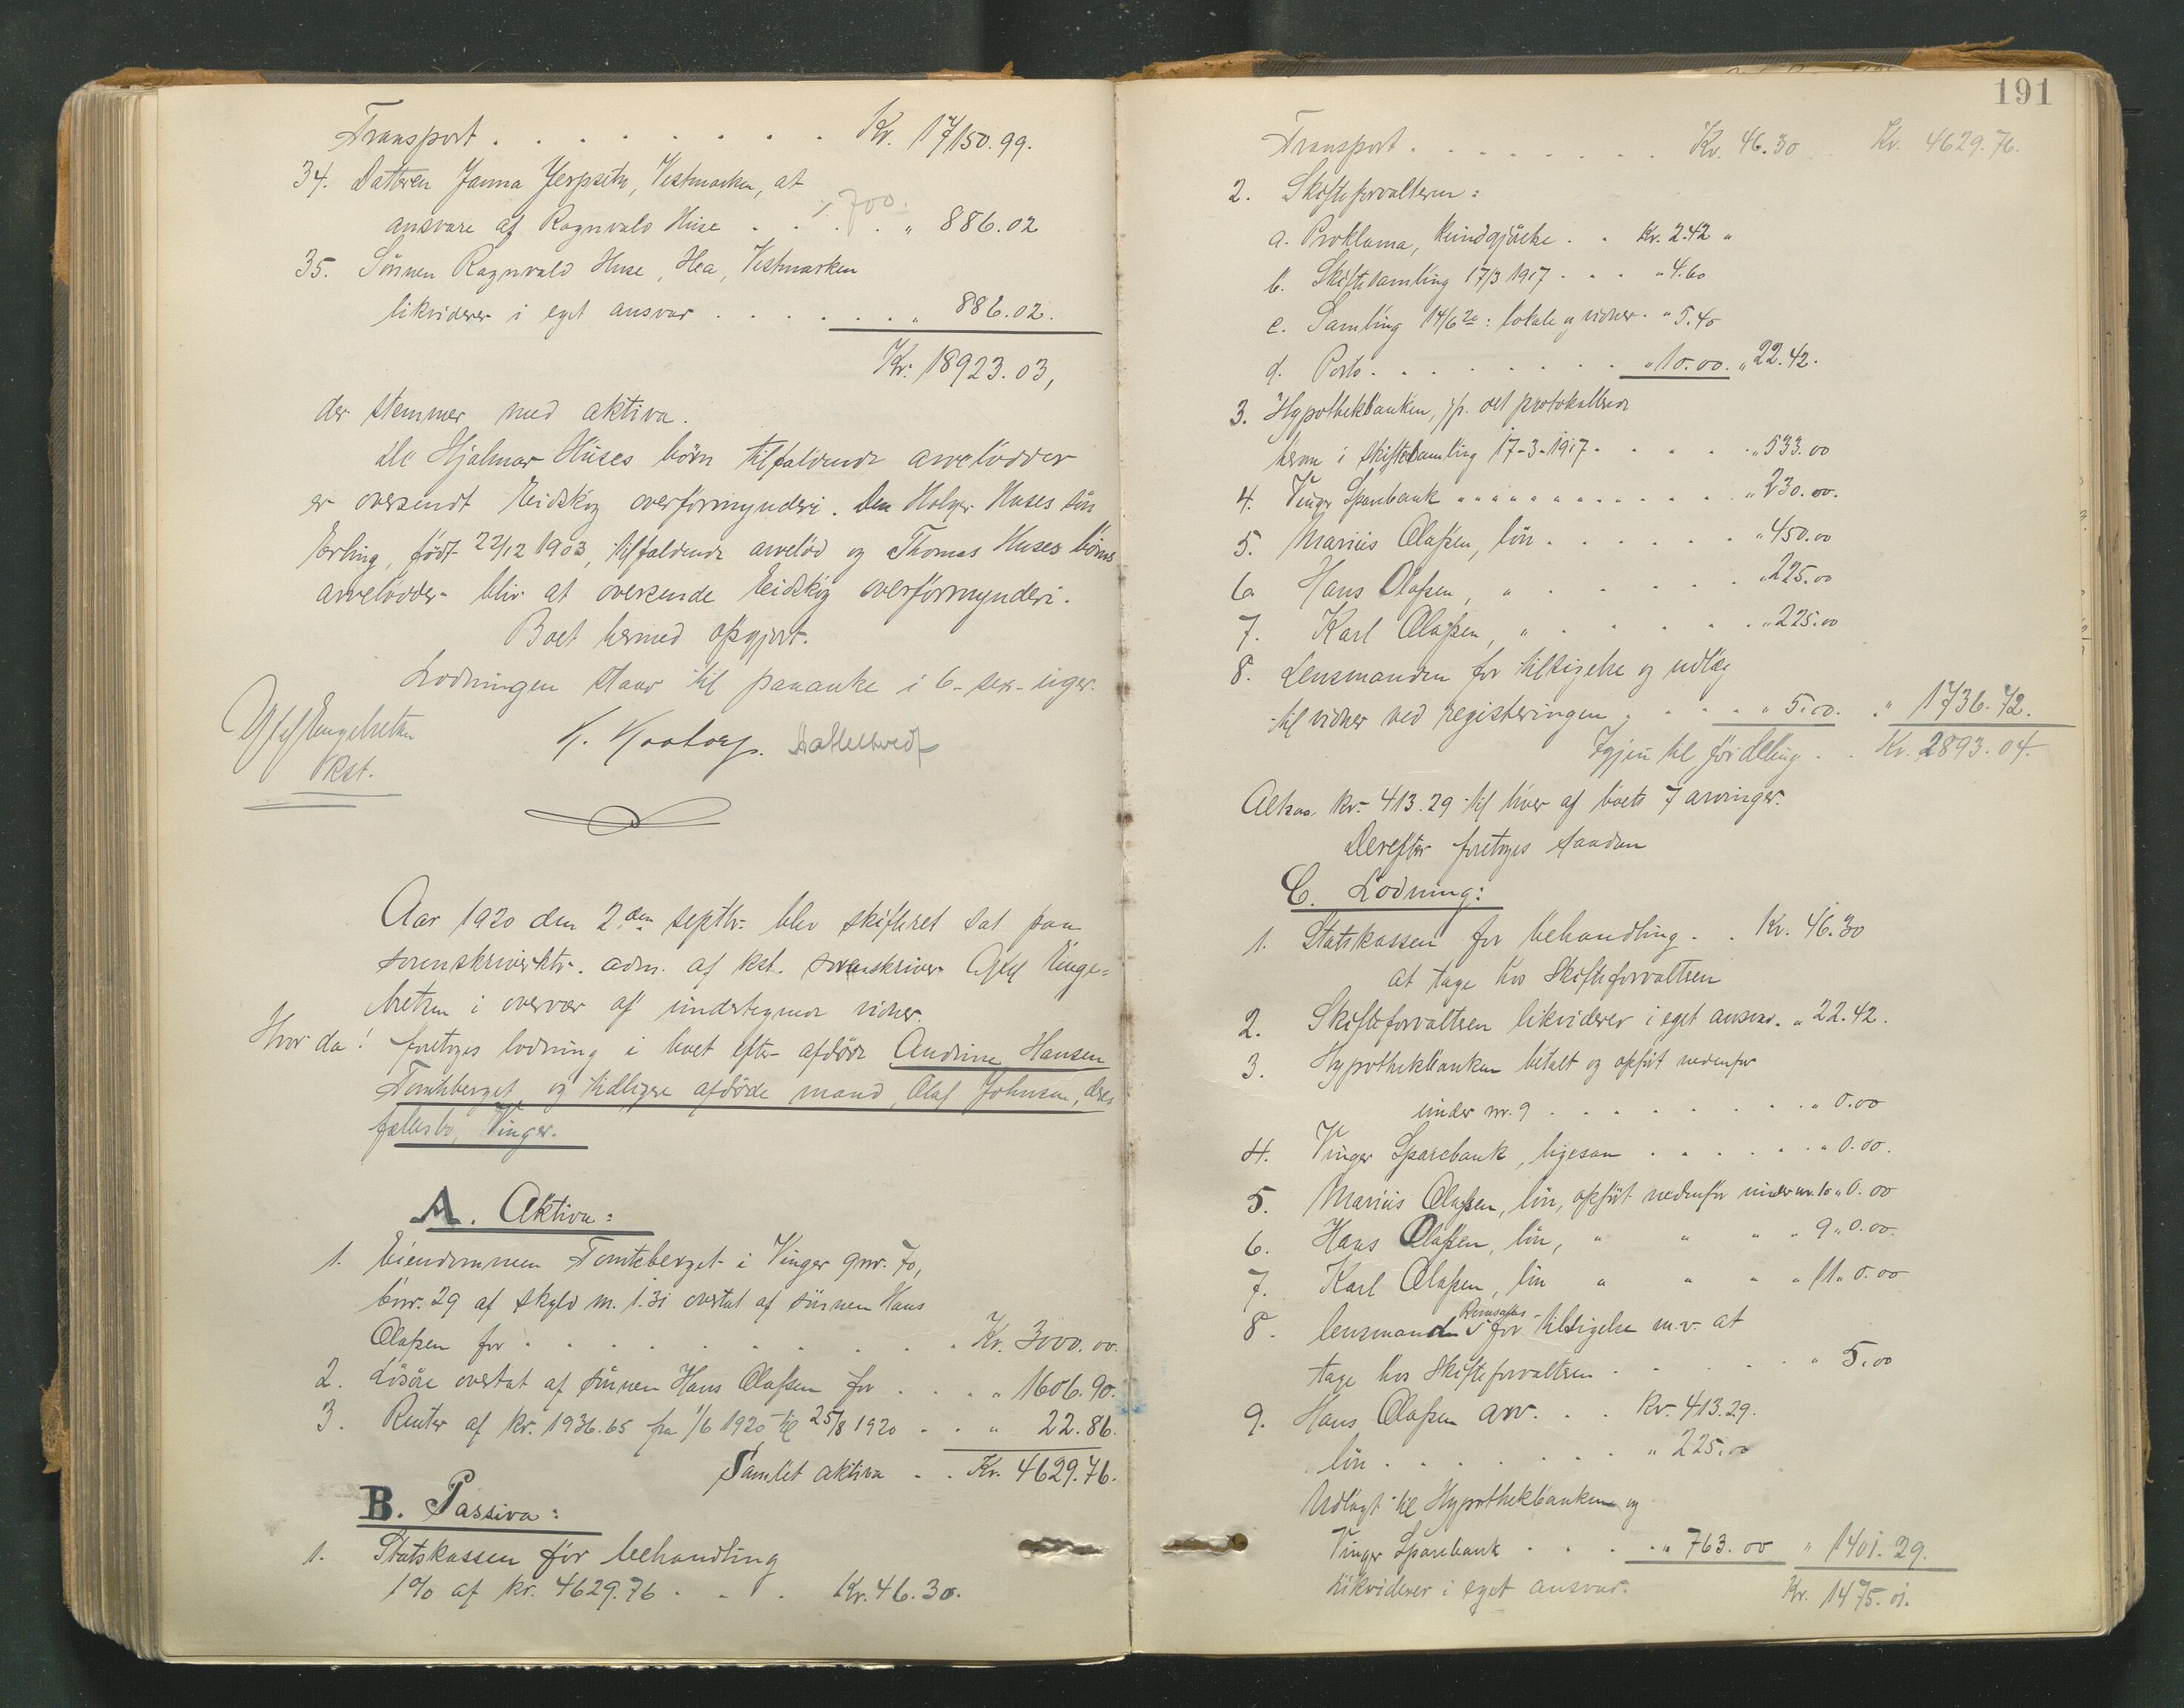 Transport . . . . . . . . Kr. 17150.99.
34. Datteren Janna Jerpseth, Vestmarken, at
ansvare af Ragnvald Huse . . . . " 886.02
÷ 700.
35. Sönnen Ragnvald Huse, Hea, Vestmarken
likviderer i eget ansvar . . . . . . " 886.02.
Kr. 18923.03,
der stemmer med aktiva.
De Hjalmar Huses börn tilfaldende arvelodder
er oversendt Eidskog overformynderi. Den Holger Huses sön
Erling, född 22/12 1903, tilfaldende arvelod og Thomas Huses börns
arvelodder blir at oversende Eidskog overformynderi.
Boet hermed opgjort.
Lodningen staar til paaanke i 6 - sex - uger.
Engebretsen
kst.
Aar 1920 den 2den septbr. blev skifteret sat paa
sorenskriverktr. adm. af kst. sorenskriver Enge=
bretsen i overvær af undertegnede vidner.
Hvor da! foretoges lodning i boet efter afdöde Andrine Hansen
Tomteberget og tidligere afdöde mand, Olaf Johnsen, deres
fællesbo, Vinger.
A. Aktiva:
1. Eiendommen Tomteberget i Vinger gnr. 70,
bnr. 29 af skyld m. 1.31 overtat af sönnen Hans
Olafsen for . . . . . . . . . . . Kr. 3000.00.
2. Lösöre overtat af sönnen Hans Olafsen for . . . . " 1606.90.
3. Renter af kr. 1936.65 fra 1/6 1920 til 25/8 1920 . . " 22.86.
Samlet aktiva . . Kr. 4629.76.
B. Passiva:
1. Statskassen for behandling
1% af kr. 4629.76 . . . Kr. 46.30.
191
Transport . . . . . . . . Kr. 46.30 Kr. 4629.76.
2. Skifteforvalteren:
a. Proklama, kundgjörelse . . Kr. 2.42 "
b. Skiftesamling 17/3 1917 . . . " 4.60
c. Samling 14/6 20: lokale og vidner . " 5.40
d. Porto . . . . . . . . " 10.00. " 22.42.
3. Hypothekbanken, jfr. det protokollerede
herom i skiftesamling 17-3-1917 . . . . . " 533.00
4. Vinger Sparebank . . . . . . . . . . . " 230.00.
5. Marius Olafsen, lön . . . . . . " 450.00
6. Hans Olafsen, " . . . . . " 225.00
7. Karl Olafsen, " . . . . . . " 225.00
8. Lensmanden for tilsigelse og utlæg
til vidner ved registreringen . . . . " 5.00. . " 1736.72.
Igjen til fordeling . . Kr. 2893.04.
Altsaa kr. 413.29 til hver af boets 7 arvinger.
Derefter foretoges saadan
C. Lodning:
1. Statskassen for behandling . . Kr. 46.30
at tage hos skifteforvalteren
2. Skifteforvalteren likviderer i eget ansvar . " 22.42.
3. Hypothekbanken betalt og opfört nedenfor
under nr. 9 . . . . . . . . . " 0.00
4. Vinger Sparebank, ligesaa . . . . . . " 0.00.
5. Marius Olafsen, lön, opfört nedenfor under nr. 10 " 0.00
6. Hans Olafsen, lön, " " " " 9 " 0.00.
7. Karl Olafsen, lön " " " " 11 " 0.00
8. lensmand for tilsigelse m.v. at
tage hos skifteforvalteren . . . . . " 5.00
9. Hans Olafsen arv . . . Kr. 413.29.
lön . . . . . . . " 225.00
Utlagt til Hypothekbanken og
Vinger Sparebank . . . . " 763.00 " 1401.29.
likviderer i eget ansvar. Kr. 1475.01.